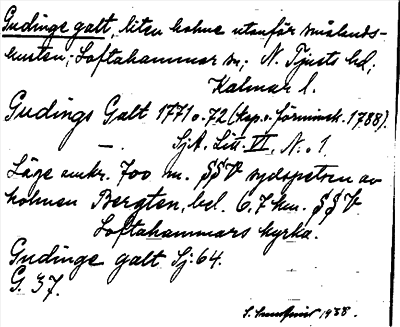 Gudinge galt, liten holme utanför smålands-
kusten; Loftahammar sn; N. Tjusts hd;
Kalmar l.
Gudings Galt 1771 o. 72 (kop. o. förminsk. 1788).
— SjA. Litt. VI, N:o 1
Läge omkr. 700 m. SSV sydspetsen av
holmen Bergten, bel. 6,7 km. SSV
Loftahammars kyrka.
Gudinge galt Sj: 64.
G. 37.
1938.